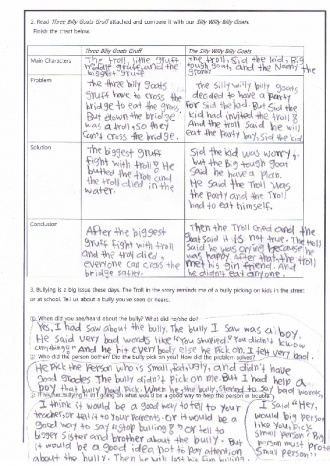 2. Read Three Billy Goats Gruff attached and compare it with our Silly Willy Billy Goats.
Finish the chart below.
Three Billy Goats Gruff
The Silly Willy Billy Goats
Main Characters
The troll, little gruff
middle gruff, and the
biggest gruff
The troll, Sid the kid, Big
tough goat, and the Nanny the
Problem
The three billy goats
gruff have to cross the
bridge to eat the grass,
But down the bridge
was a troll, so they
can't cross the bridge.
The silly willy billy goats
decided to have a party
for Sid the kid. But Sid the
kid had invited the troll
And the troll said he will
eat the party boy, Sid the kid
Solution
The biggest gruff
fight with troll
butted the troll and
the troll died in the
water.
Sid the kid was worry,
but the Big tough goat
said he have a plan.
He said the Troll was
the party and the Troll
had to eat himself.
Conclusion
After the biggest
gruff fight with troll
and the troll died,
everyone can cross the
bridge safer.
Then the Troll cried and the
goat said it is not true. The troll
said he was crying because he
was happy, after that, the troll
met his girl friend. And
he didn't eat anyone.
3. Bullying is a big issue these days. The Troll in the story reminds me of a bully picking on kids in the street
or at school. Tell us about a bully you've seen or heard.
① When did you see/hear about the bully? What did he/she do?
Yes, I had saw about the bully. The bully I saw was a boy.
He said very bad words like "You stupied", "You didn't know
anything". And he hit everybody else he Pick on. I felt very bad.
② Who did the person bother? Did the bully pick on you? How did the problem solve?
He Pick the Person who is small, and didn't have
good grades. The bully didn't Pick on me But I had help a
boy that bully had Pick. When he the bully started to say bad words,
③ If the bullying is still going on what would be a good way to help the person in trouble?
I think it would be a good way to tell to your
teacher, or tell it to your Parents. Or it would be a
good way to say "stop bulling" or tell to
bigger sister and brother about the bully. But
it would be a good idea not to pay attention
about the bully. Then he will lost his fun bulling
I said "Hey,
would big Person
like you, Pick
small Person? Big
Person must Pro
small Person